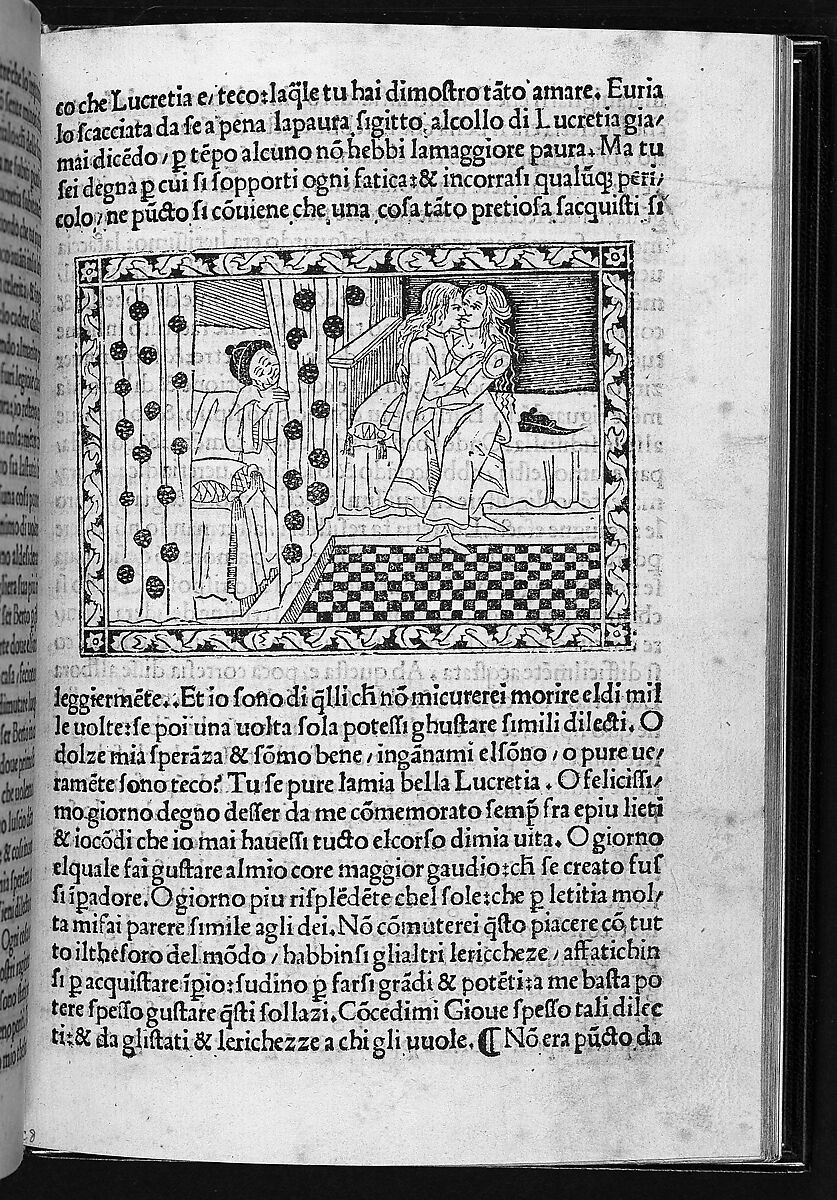 co che Lucretia e/ teco: laq̃le tu hai dimoſtro tãto amare. Euria
lo ſcacciata da ſe a pena la paura ſi gitto alcollo di Lucretia gia/
mai dicẽdo/ ꝑ tẽpo alcuno nõ hebbi lamaggiore paura. Ma tu
ſei degna ꝑ cui ſi ſopporti ogni fatica: & incorraſi qualũqȝ peri/
colo/ ne pũcto ſi cõuiene che una coſa tãto pretioſa ſacquiſti ſi
leggiermẽte. Et io ſono di q̃lli ch̃ nõ micurerei morire eldi mil
le uolte: ſe poi una uolta ſola poteſſi ghuſtare ſimili dilecti. O
dolze mia ſperãza & ſõmo bene/ ingãnami elſõno/ o pure ue/
ramẽte ſono teco? Tu ſe pure lamia bella Lucretia. O feliciſſi/
mo giorno degno deſſer da me cõmemorato ſemꝑ fra epiu lieti
& iocõdi che io mai haueſſi tucto elcorſo dimia uita. O giorno
elquale fai guſtare almio core maggior gaudio: ch̃ ſe creato fuſ
ſi ĩꝑadore. O giorno piu riſplẽdẽte chel ſole: che ꝑ letitia mol/
ta mifai parere ſimile agli dei. Nõ cõmuterei q̃ſto piacere cõ tut
to iltheſoro del mõdo/ habbinſi glialtri lericcheze/ affatichin
ſi ꝑ acquiſtare ĩꝑio: ſudino ꝑ farſi grãdi & potẽti: a me baſta po
tere ſpeſſo guſtare q̃ſti ſollazi. Cõcedimi Gioue ſpeſſo tali dilec
ti: & da gliſtati & lerichezze a chi gli uuole. ¶ Nõ era pũcto da